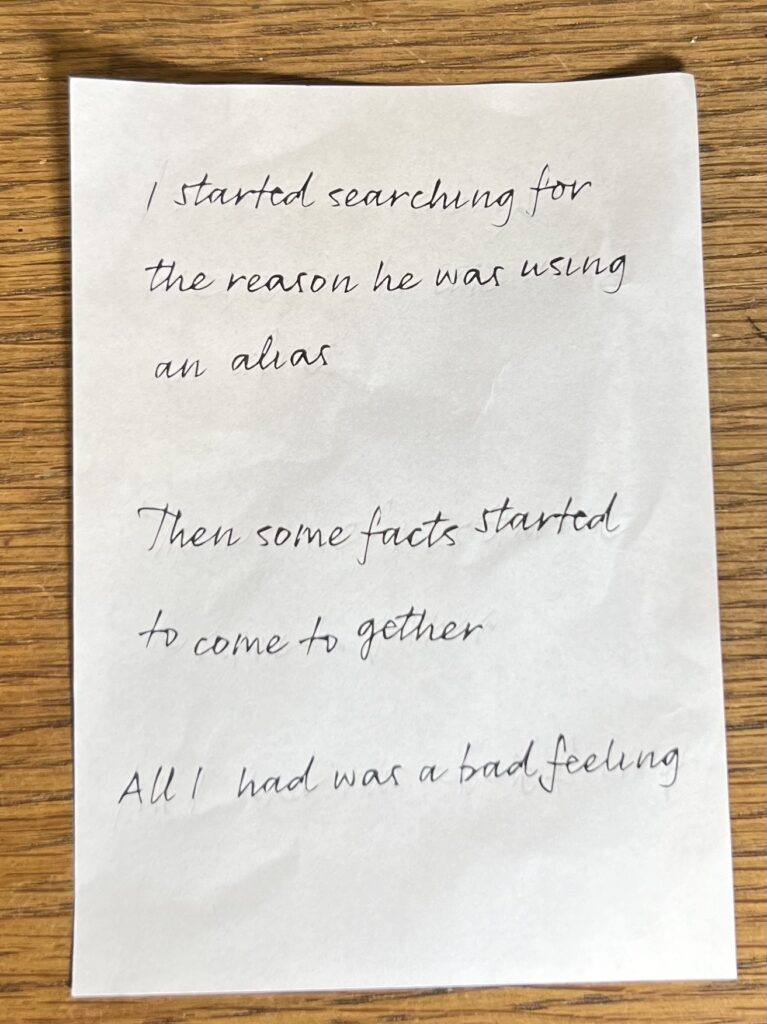 I started searching for
the reason he was using
an alias
Then some facts started
to come to gether
All I had was a bad feeling